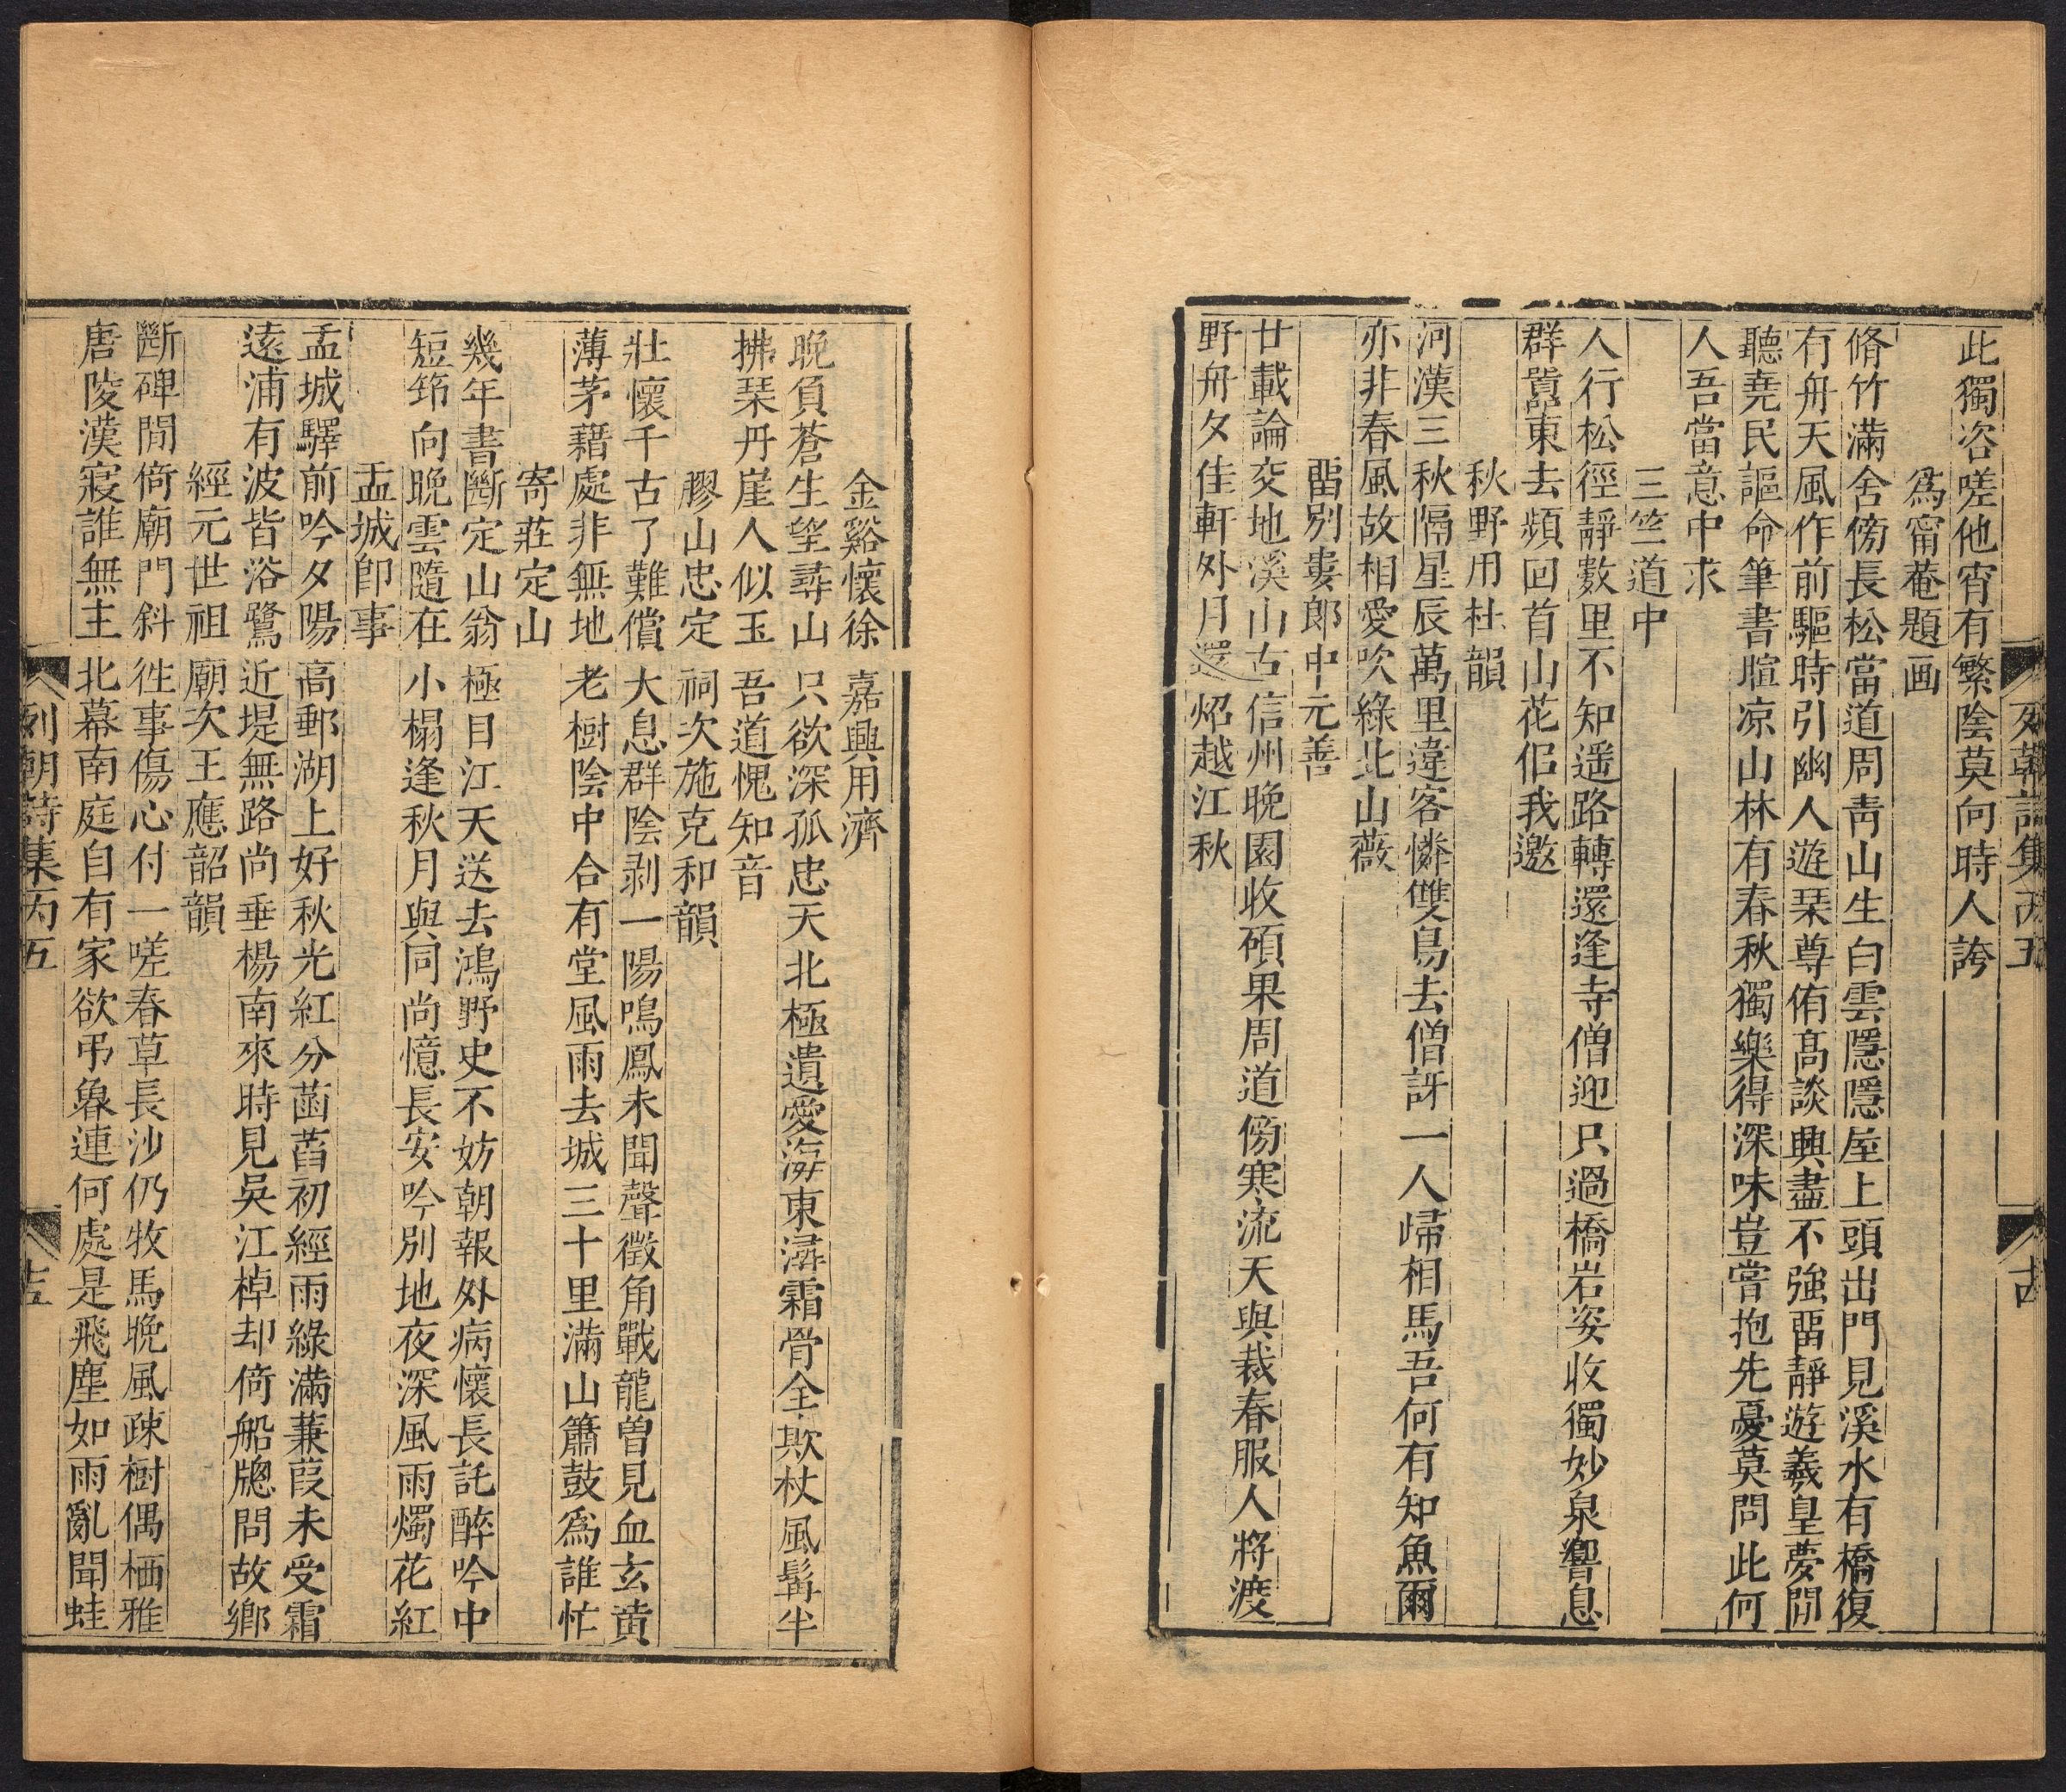 列朝詩集丙五
此獨咨嗟他宵有繁陰莫向時人誇
爲甯菴題画
脩竹滿舍傍長松當道周靑山生白雲隱隱屋上頭出門見溪水有橋復
有舟天風作前驅時引幽人遊琹尊侑高談興盡不強畱靜遊羲皇夢閒
聽堯民謳命筆書暄凉山林有春秋獨樂得深味豈嘗抱先憂莫問此何
人吾當意中求
三竺道中
人行松徑靜數里不知遥路轉還逢寺僧迎只過橋岩姿收獨妙泉響息
群囂東去頻回首山花佀我邀
秋野用杜韻
河漢三秋隔星辰萬里違客憐雙鳥去僧訝一人歸相馬吾何有知魚爾
亦非春風故相愛吹綠北山薇
畱別婁郎中元善
廿載論交地溪山古信州晚園收碩果周道傷寒流天與裁春服人將渡
野舟夕佳軒外月還炤越江秋
金谿懷徐嘉興用濟
晚負蒼生望尋山只欲深孤忠天北極遺愛海東潯霜骨全欺杖風髯半
拂琹丹崖人似玉吾道愧知音
膠山忠定祠次施克和韻
壯懷千古了難償大息群陰剥一陽鳴鳳未聞聲徵角戰龍曾見血玄黄
薄茅藉處非無地老樹陰中合有堂風雨去城三十里滿山簫鼓爲誰忙
寄莊定山
幾年書斷定山翁極目江天送去鴻野史不妨朝報外病懷長託醉吟中
短笻向晚雲隨在小榻逢秋月與同尚憶長安吟別地夜深風雨燭花紅
盂城卽事
盂城驛前吟夕陽高郵湖上好秋光紅分菡萏初經雨綠滿蒹葭未受霜
遠浦有波皆浴鷺近堤無路尚垂楊南來時見吳江棹却倚船牕問故鄉
經元世祖廟次王應韶韻
斷碑閒倚廟門斜徃事傷心付一嗟春草長沙仍牧馬晚風疎樹偶栖雅
唐陵漢寢誰無主北幕南庭自有家欲弔魯連何處是飛塵如雨亂聞蛙
列朝詩集丙五